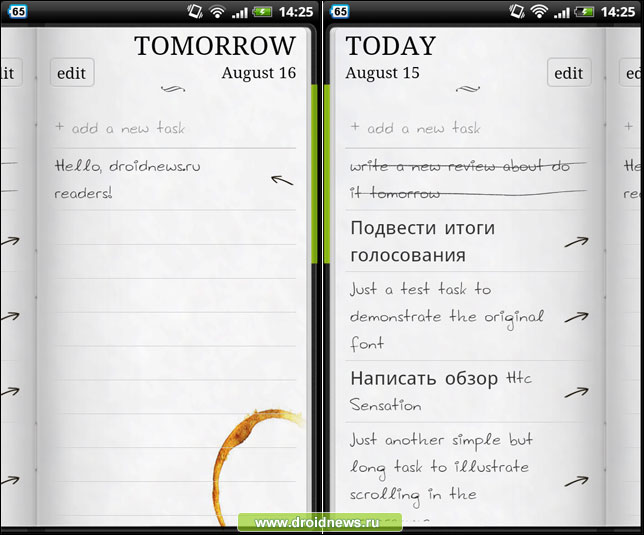 65
14:25
65
14:25
TOMORROW
edit
August 16
+ add a new task
Hello, droidnews.ru
readers!
TODAY
August 15
edit
+ add a new task
write a new review about do
it tomorrow
Подвести итоги
голосования
Just a test task to
demonstrate the original
font
Написать обзор Htc
Sensation
Just another simple but
long task to illustrate
scrolling in the
www.droidnews.ru